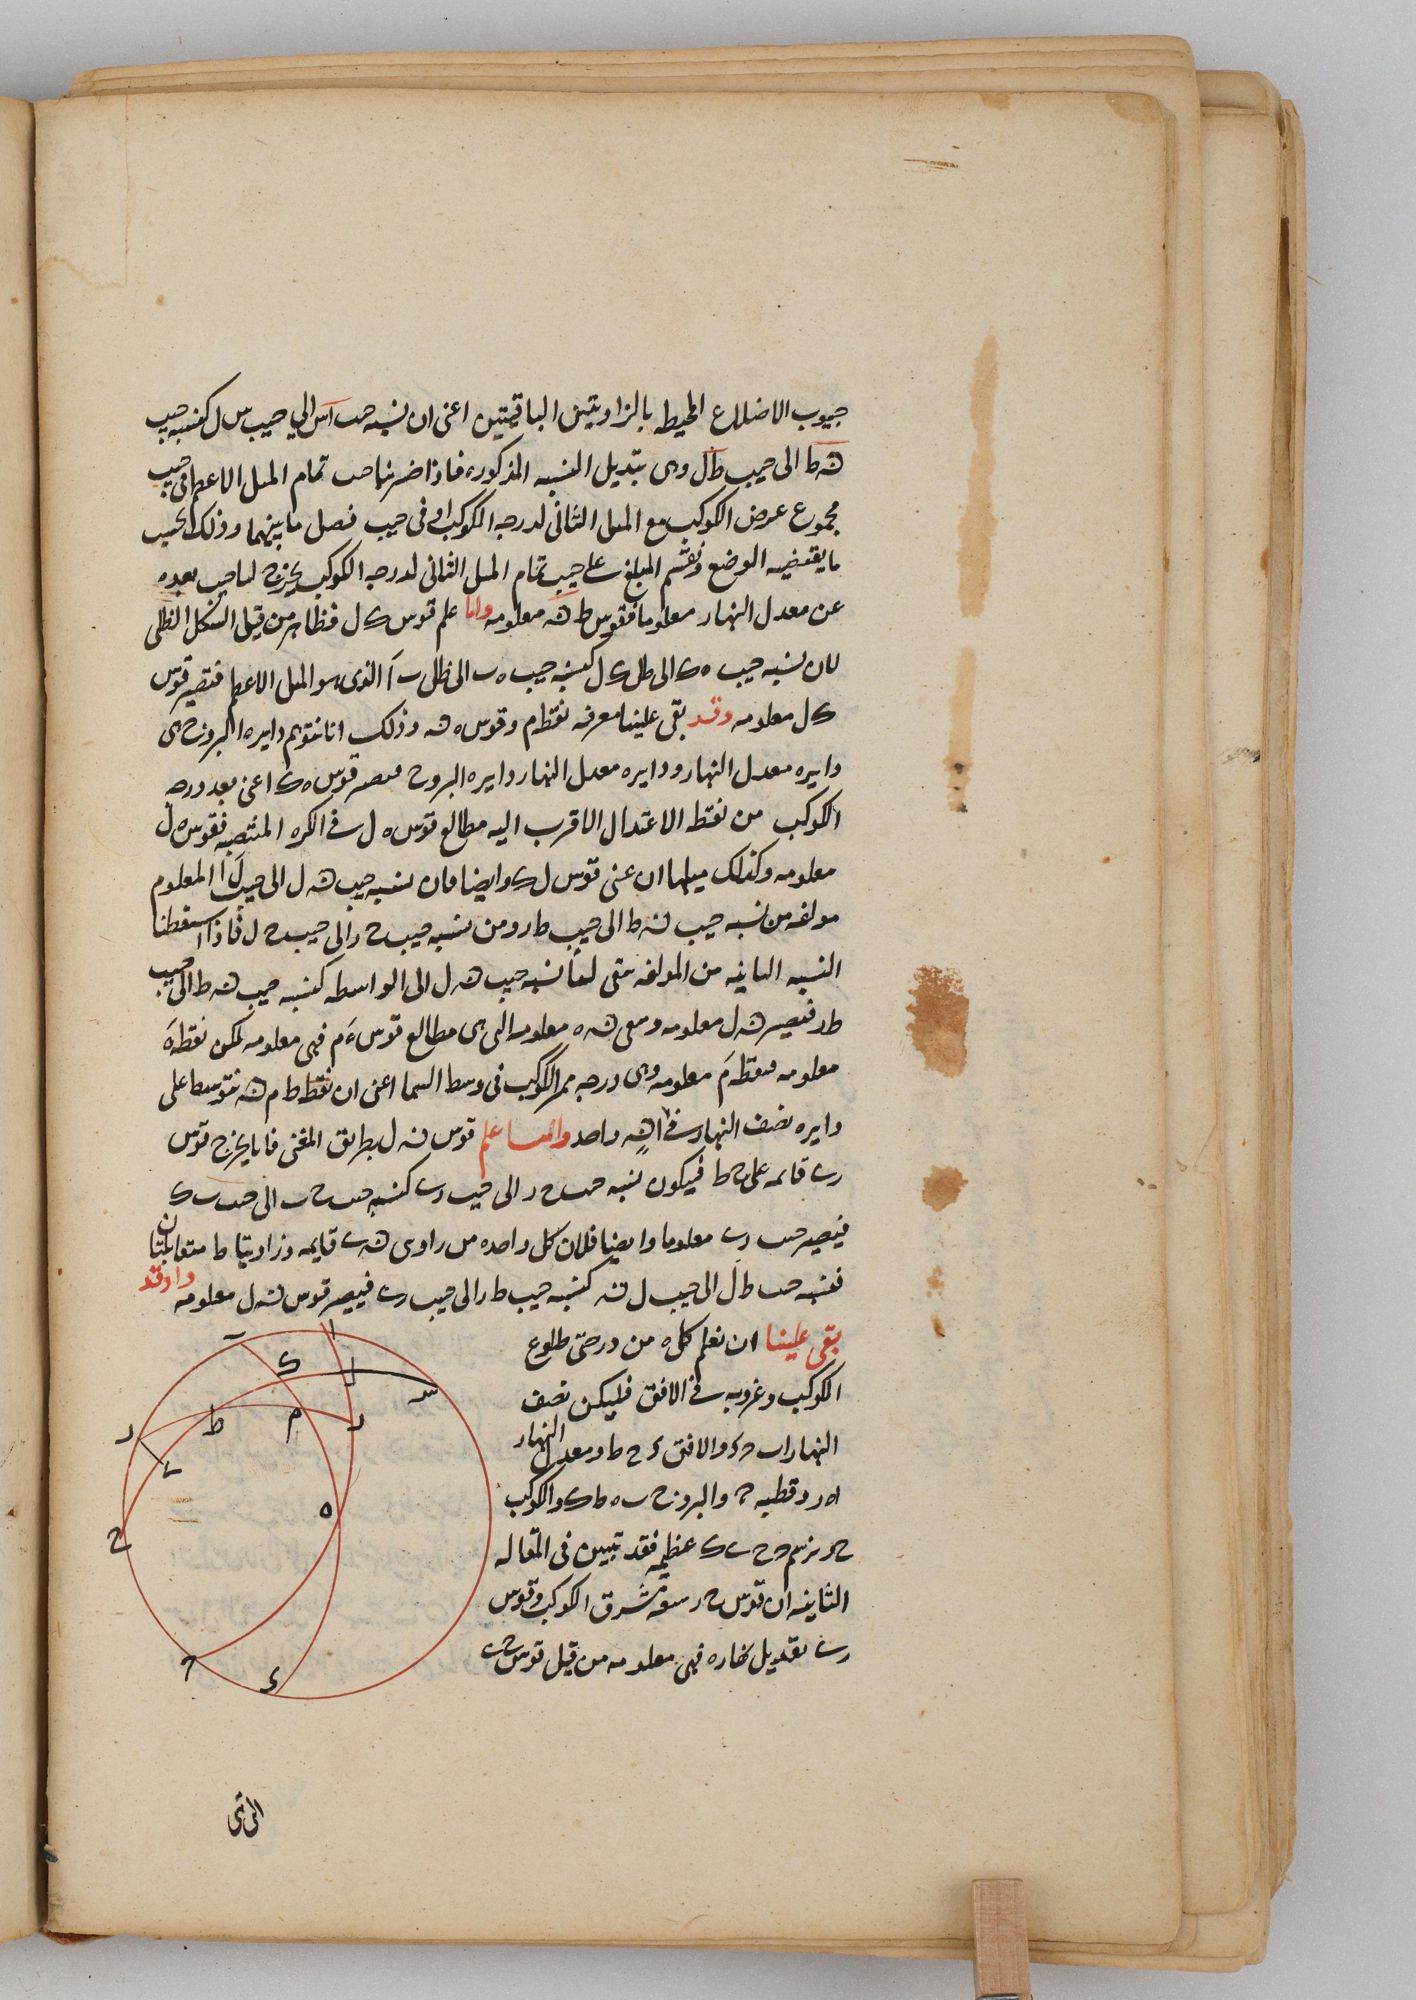 جيوب الاضلاع المحيطه بالزاويتين الباقيتين اعنى ان نسبه حب اس الى جيب س ل كنسبه جيب
ه ط الى جيب طل وهى تبديل النسبه المذكوره فاذا ضربنا حب تمام الميل الاعظم فى جيب
مجموع عرض الكوكب مع الميل الثانى لدرجه الكوكب او فى جيب فصل ما بينهما وذلك بحسب
ما يقتضيه الوضع ونقسم المبلغ على جيب تمام الميل الثانى لدرجه الكوكب يخرج لنا جيب بعده
عن معدل النهار معلوما فقوس ط ه معلومه واما علم قوس ك ل فظاهر من قبل الشكل الظلى
لان نسبه جيب ه ك الى ظل ك ل كنسبه جيب ه ب الى ظل ب ا الذى هو الميل الاعظم فتصير قوس
ك ل معلومه وقد بقى علينا معرفه نقطه م وقوس ه ف وذلك انا نتوهم دايره البروج هى
دايره معدل النهار ودايره معدل النهار دايره البروج فتصير قوس ه ك اعنى بعد درجه
الكوكب من نقطه الاعتدال الاقرب اليه مطالع قوس ه ل فى الكره المنتصبه فقوس ه ل
معلومه وكذلك ميلها اعنى قوس ل ك وايضا فان نسبه جيب ه ل الى جيب ل ا المعلوم
مولفه من نسبه جيب ه ط الى جيب ط ر ومن نسبه جيب ح ر الى جيب ح ل فاذا اسقطنا
النسبه الثانيه من المولفه بقى لنا نسبه جيب ه ل الى الواسطه كنسبه جيب ه ط الى جيب
ط ر فتصير ه ل معلومه وبقى ه ه معلومه التى هى مطالع قوس ه م فهى معلومه لكن نقطه ه
معلومه فنقطه م معلومه وهى درجه ممر الكوكب فى وسط السما اعنى ان نقط ط م ه تتوسط على
دايره نصف النهار فى ان واحد وايضا علم قوس ه ل بطريق المغنى فانا نخرج قوس
ر ى قائمه على ح ط فيكون نسبه جيب ح ر الى جيب ر ى كنسبه جيب ح ب الى جيب ب ك
فيصير جيب ر ى معلوما وايضا فلان كل واحده من زاويتى ه ى قايمه وزاويتا ط متقابلتان
فنسبه جيب ط ل الى جيب ل ه كنسبه جيب ط ر الى جيب ر ى فيصير قوس ه ل معلومه واذ قد
بقى علينا ان نعلم كل ه من درجتى طلوع
الكوكب وغروبه فى الافق فليكن نصف
النهار اب ح د والافق د ح ط ومعدل النهار
ا ه ر وقطبه ح والبروج ب ه ط ك والكوكب
ح ونرسم ح ى ك عظيمه فقد تبين فى المقاله
الثانيه ان قوس ح ر سعه مشرق الكوكب وقوس
ر ى تعديل نهاره فهى معلومه من قبل قوس ح ى
ا
ب
ك
ل
س
ط
م
د
ر
ى
ه
ح
ح
د
التى هى